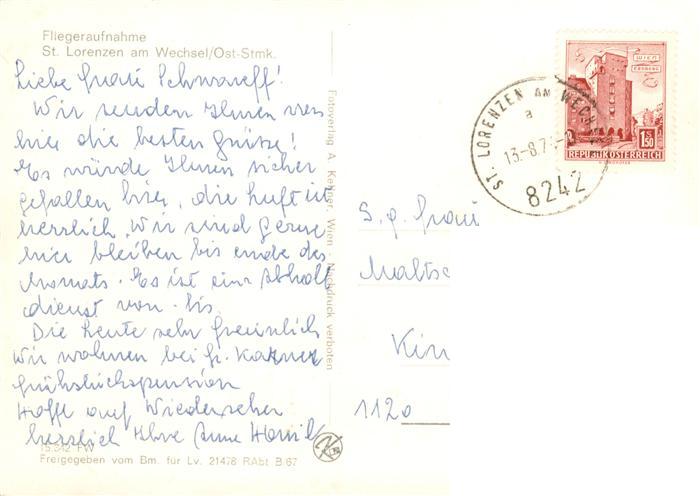 Fliegeraufnahme
St. Lorenzen am Wechsel/Ost-Stmk.
Liebe Frau
Wir senden Ihnen von
hier die besten Grüsse!
Es würde Ihnen sicher
gefallen hier, die Luft ist
herrlich. Wir sind gerne
hier bleiben bis ende des
Monats. Es ist ein Abhol
dienst von - bis
Die Leute sehr freundlich
Wir wohnen bei Fr.
Frühstückspension
Hoffe auf Wiedersehen
herzlich Ihre Anne
15.542 FW
Freigegeben vom Bm. für Lv. 21478 RAbt B/67
Fotoverlag A. Kellner, Wien - Nachdruck verboten
ST. LORENZEN AM WECHSEL
a
13.-8.7
8242
WIEN
ERDBERG
1.50
REPUBLIK ÖSTERREICH
S. g. Frau
Maltsc
Kin
1120